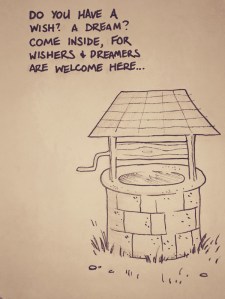 DO YOU HAVE A
WISH? A DREAM?
COME INSIDE, FOR
WISHERS & DREAMERS
ARE WELCOME HERE...